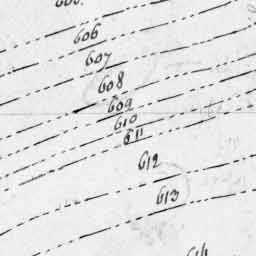 606
607
608
609
610
611
612
613